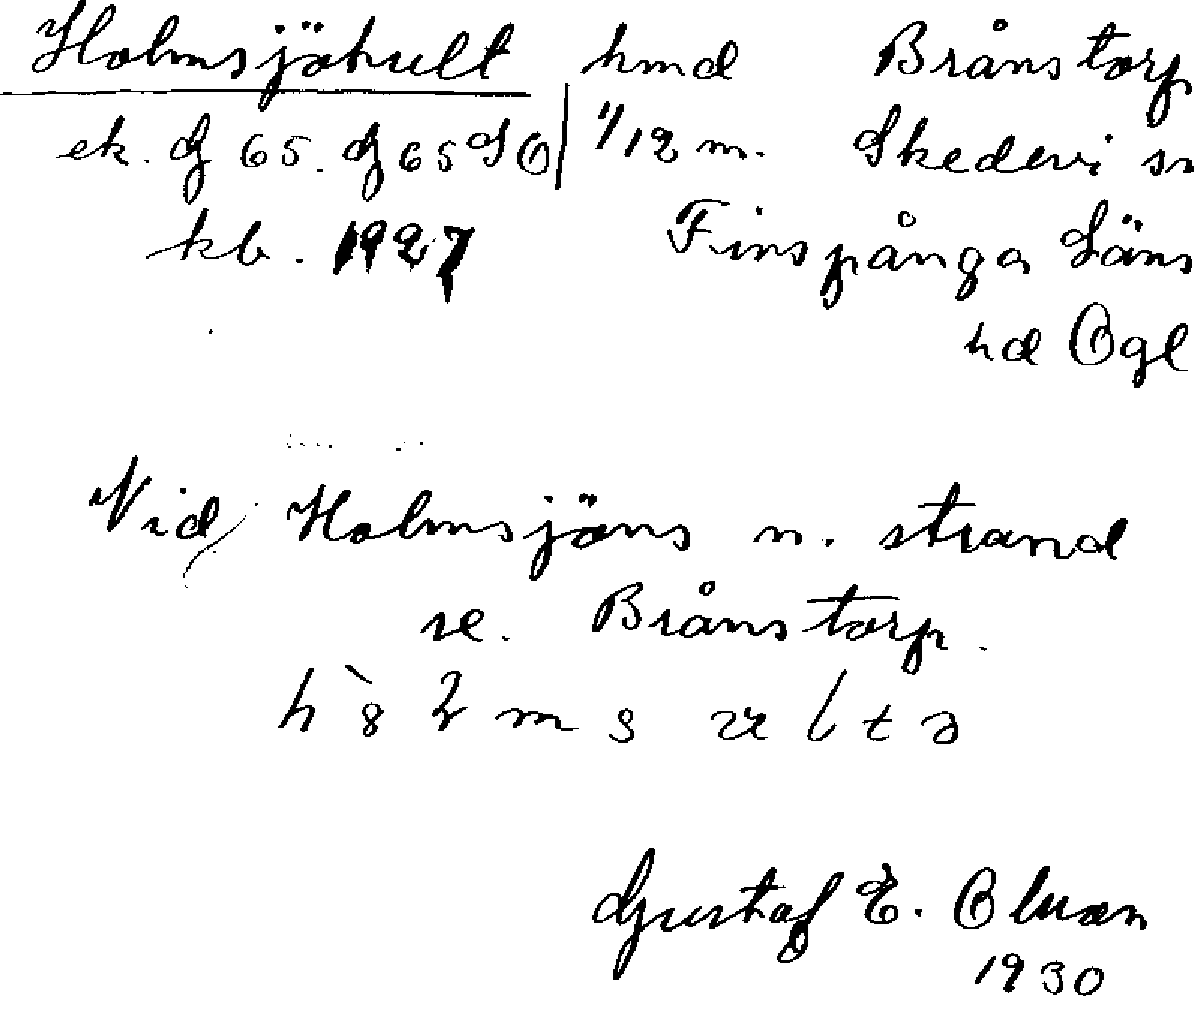 Holmsjöhult hmd Brånstorp
ek. G 65. G 65 SO 1/12 m. Skedevi sn
kb. 1927 Finspånga Läns
hd Ögl
Vid Holmsjöns n. strand
se. Brånstorp.
Gustaf E. Olsson
1930